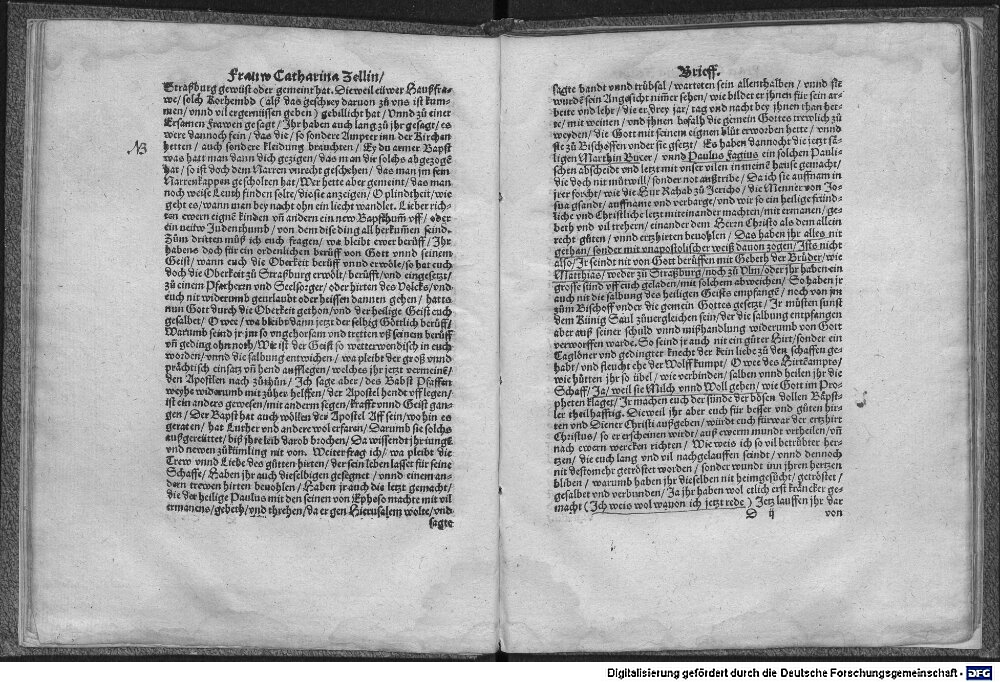 Frauw Catharina Zellin/
Straßburg gewüst oder gemeint hat. Dieweil eüwer Haußfra-
we/ solch Korhembd (alß das geschrey daruon zů vns ist kum-
men/ vnnd vil ergernissen geben) gebillicht hat/ Vnnd zů einer
Ersamen Frawen gesagt/ Jhr haben auch lang zů jhr gesagt/ es
were dannoch fein/ das die/ so sondere Ampter inn der Kirchan
hetten/ auch sondere kleidung brauchten/ Ey du armer Bapst
was hatt man dann dich gezigen/ das man dir solchs abgezogē
NB
hat/ so ist doch dem Narren vnrecht geschehen/ das man jm sein
Narrenkappen gescholten hat/ Wer hette aber gemeint/ das man
noch weise Leuth finden solte/ die sie anzeigen/ O plindtheit/ wie
geht es/ wann man bey nacht ohn ein liecht wandlet. Lieber rich-
ten ewern eignē kinden vñ andern ein new Bapsthum vff/ oder
ein neüw Judenthumb/ von dem dise ding all herkumen seind.
Zum dritten můß ich euch fragen/ wa bleibt ewer berüff/ Jhr
habens doch für ein ordenlichen berüff von Gott vnnd seinem
Geist/ wann euch die Oberkeit berüff vnnd erwöle/ so hat euch
doch die Oberkeit zů Straßburg erwölt/ berüfft/ vnd eingesetzt/
zů einem Pfarherrn vnd Seelsorger/ oder hirten des Volcks/ vnd
euch nit widerumb geurlaubt oder heissen dannen gehen/ hatts
nun Gott durch die Oberkeit gethon/ vnd der heilige Geist euch
gesalbet/ O wee/ wa bleibt dann jetzt der selbig Göttlich berüff/
Warumb seind jr jm so vngehorsam vnd tretten vß seinem berüff
vñ geding ohn noth/ Wie ist der Geist so wetterwendisch in euch
worden/ vnnd die salbung entwichen/ wa pleibt der groß vnnd
prächtisch einsatz vñ hend aufflegen/ welches jhr jetzt vermeinē/
den Apostlen nach zůthůn/ Jch sage aber/ des Babst Pfaffen
weyhe widerumb mit zůher helffen/ der Apostel hendt vfflegen/
ist ein anders gewesen/ mit anderm segen/ krafft vnnd Geist gan-
gen/ Der Bapst hat auch wöllen der Apostel Aff sein/ wo hin es
geraten/ hat Luther vnd andere wol erfaren/ Darumb sie solchs
außgereüttet/ biß jhre leib darob brochen/ Da wissendt jhr iungē
vnd newen zůkümling nit von. Weiter frag ich/ wa pleibt die
Trew vnnd Liebe des gůtten hirten/ der sein leben lasset für seine
Schaffe/ Haben jhr auch dieselbigen gesegnet/ vnnd einem an-
dern trewen hirten beuohlen/ Haben jr auch die letzt gemacht/
die der heilige Paulus mit den seinen von Epheso machte mit vil
ermanens/ gebeth/ vnd threhen/ da er gen Hierusalem wolte/ vnd
sagte
Brieff.
sagte bandt vnnd trübsal/ wartoten sein allenthalben/ vnnd sie
wurdē sein Angesicht nim̄er sehen/ wie bildet er jhnen für sein ar-
beite vnd lehr/ die er drey jar/ tag vnd nacht bey jhnen than het-
te/ mit weinen/ vnd jhnen befalh die gemein Gottes trewlich zů
weyden/ die Gott mit seinem eignen blůt erworben hette/ vnnd
sie zů Bischoffen vnder sie gsetzt/ Es haben dannocht die jetzt sä-
ligen Marthin Bucer/ vnnd Paulus Fagius ein solchen Pauli-
schen abscheidt vnd letzt mit vnser vilen in meinē hause gemacht/
die doch nit můtwill/ sonder not außtribe/ Da ich sie auffnam in
jrer forcht/ wie die Hůr Rahab zů Jericho/ die Menner von Jo-
sua gsandt/ auffname vnd verbarge/ vnd wir so ein heilige fründ-
liche vnd Christliche letzt miteinander machten/ mit ermanen/ ge-
beth vnd vil threhern/ einander dem Herrn Christo als dem allein
recht gůten/ vnnd ertzhirten beuohlen/ Das haben jhr alles nit
gethan/ sonder mit vnapostolischer weiß dauon zogen/ Jsts nicht
also/ Jr seindt nit von Gott berüffen mit Gebeth der Brüder/ wie
Matthias/ weder zů Straßburg/ noch zů Vlm/ oder jhr haben ein
grosse sünd vff euch geladen/ mit solchem abweichen/ So haben jr
auch nit die salbung des heiligen Geists empfangē/ noch von jm
zům Bischoff vnder die gemein Gottes gesetzt/ Jr müsten sunst
dem Künig Saul zůuergleichen sein/ der die salbung entpfangen
aber auß seiner schuld vnnd mißhandlung widerumb von Gott
verworffen warde. So seind jr auch nit ein gůter Hirt/ sonder ein
Taglöner vnd gedingter knecht der kein liebe zů den schaffen ge-
habt/ vnd fleucht ehe der Wolff kumpt/ O wee des Hirtēampts/
wie hütten jhr so übel/ wie verbinden/ salben vnnd heilen jhr die
Schaff/ Ja/ weil sie Milch vnnd Woll geben/ wie Gott im Pro-
pheten klaget/ Jr machen euch der sünde der bösen vollen Bäpst-
ler theilhafftig. Dieweil jhr aber euch für besser vnd gůten hir-
ten vnd Diener Christi außgeben/ würdt euch fürwar der ertzhirt
Christus/ so er erscheinen wirdt/ auß ewerm mundt vrtheilen/ vñ
nach ewern wercken richten/ Wie weis ich so vil betrübter hert-
zen/ die euch lang vnd vil nachgelauffen seindt/ vnnd dennoch
nit destomehr getröstet worden/ sonder wundt inn jhren hertzen
bliben/ warumb haben jhr dieselben nit heimgesůcht/ getröstet/
gesalbet vnd verbunden/ Ja jhr haben wol etlich erst kräncker ge-
macht (Jch weis wol wauon ich jetzt rede) Jetz lauffen jhr dar
D ij
von
Digitalisierung gefördert durch die Deutsche Forschungsgemeinschaft - DFG